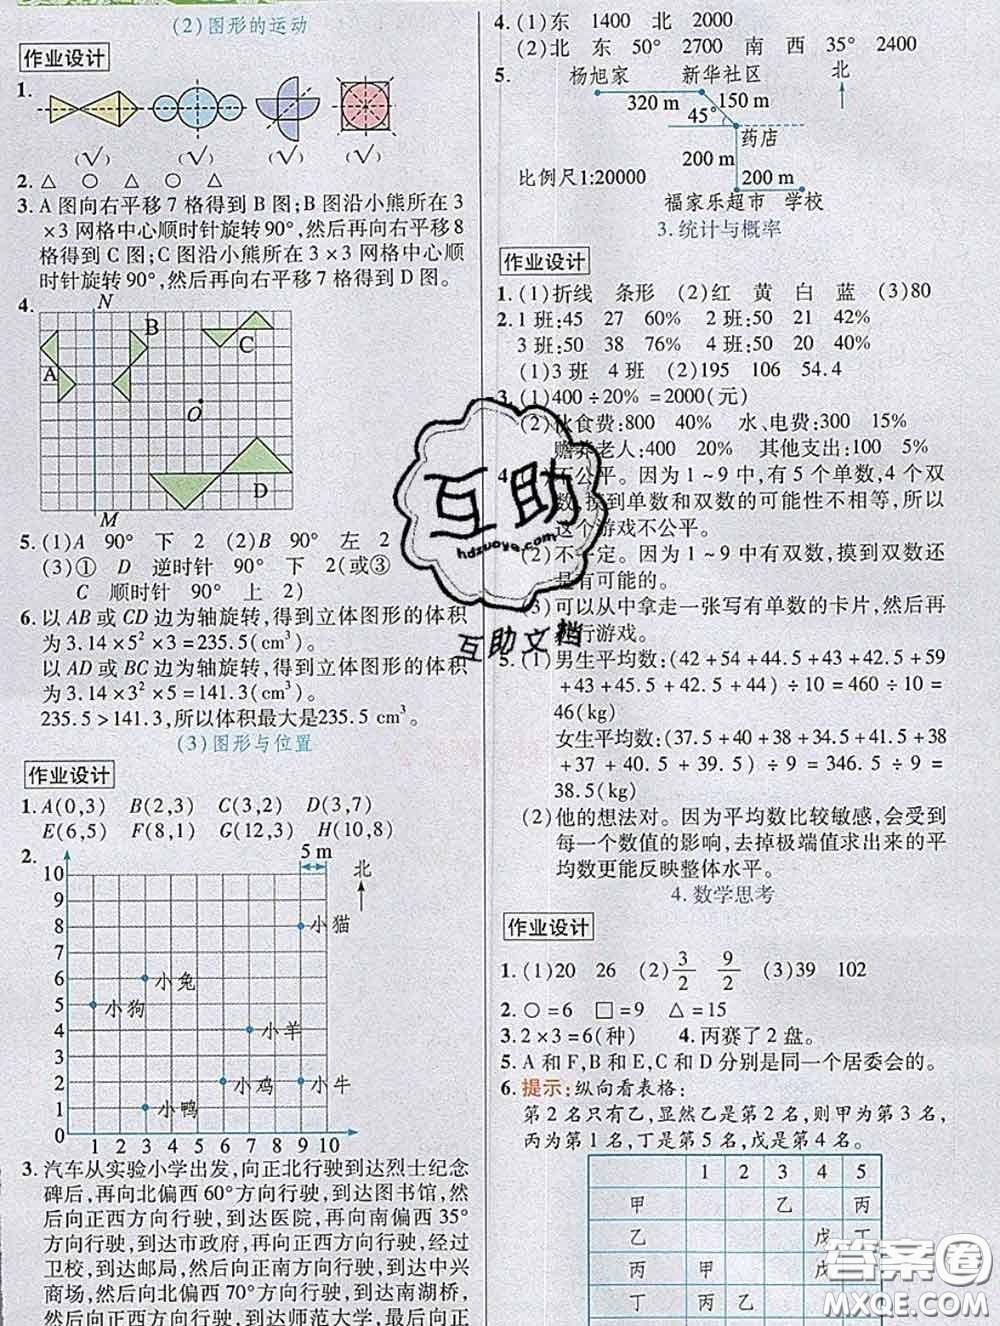 (2)图形的运动
作业设计
1.
(√) (√) (√) (√)
2. △ ○ △ △ △
3. A图向右平移7格得到B图;B图沿小熊所在3
×3网格中心顺时针旋转90°,然后再向右平移8
格得到C图;C图沿小熊所在3×3网格中心顺
时针旋转90°,然后再向右平移7格得到D图。
4.
N
A
B
C
O
D
M
5. (1)A 90° 下 2 (2)B 90° 左 2
(3)① D 逆时针 90° 下 2(或③
C 顺时针 90° 上 2)
6. 以AB或CD边为轴旋转,得到立体图形的体积
为3.14×5²×3=235.5(cm³)。
以AD或BC边为轴旋转,得到立体图形的体积
为3.14×3²×5=141.3(cm³)。
235.5>141.3,所以体积最大是235.5 cm³。
(3)图形与位置
作业设计
1. A(0,3) B(2,3) C(3,2) D(3,7)
E(6,5) F(8,1) G(12,3) H(10,8)
2.
5 m
北
10
9
8
7
6
5
4
3
2
1
0
1 2 3 4 5 6 7 8 9 10
小猫
小兔
小狗
小羊
小鸡
小牛
小鸭
3. 汽车从实验小学出发,向正北行驶到达烈士纪念
碑后,再向北偏西60°方向行驶,到达图书馆,然
后向正西方向行驶,到达医院,再向南偏西35°
方向行驶,到达市政府,再向正西方向行驶,经过
卫校,到达邮局,然后向正南方向行驶,到达中兴
商场,然后向北偏西70°方向行驶,到达南湖桥,
然后向正西方向行驶,到达师范大学,最后向正
4. (1)东 1400 北 2000
(2)北 东 50° 2700 南 西 35° 2400
5.
杨旭家 新华社区 北
320 m
150 m
45°
药店
200 m
200 m
比例尺1:20000
福家乐超市 学校
3. 统计与概率
作业设计
1. (1)折线 条形 (2)红 黄 白 蓝 (3)80
2. 1班:45 27 60% 2班:50 21 42%
3班:50 38 76% 4班:50 20 40%
(1)3班 4班 (2)195 106 54.4
3. (1)400÷20%=2000(元)
(2)伙食费:800 40% 水、电费:300 15%
赡养老人:400 20% 其他支出:100 5%
4. 不公平。因为1~9中,有5个单数,4个双
数,摸到单数和双数的可能性不相等,所以
这个游戏不公平。
(2)不一定。因为1~9中有双数,摸到双数还
是有可能的。
(3)可以从中拿走一张写有单数的卡片,然后再
行游戏。
5. (1)男生平均数:(42+54+44.5+43+42.5+59
+43+45.5+42.5+44)÷10=460÷10=
46(kg)
女生平均数:(37.5+40+38+34.5+41.5+38
+37+40.5+39.5)÷9=346.5÷9=
38.5(kg)
(2)他的想法对。因为平均数比较敏感,会受到
每一个数值的影响,去掉极端值求出来的平
均数更能反映整体水平。
4. 数学思考
作业设计
1. (1)20 26 (2)3/2 9/2 (3)39 102
2. ○=6 □=9 △=15
3. 2×3=6(种) 4. 丙赛了2盘。
5. A和F,B和E,C和D分别是同一个居委会的。
6. 提示:纵向看表格:
第2名只有乙,显然乙是第2名,则甲为第3名,
丙为第1名,丁是第5名,戊是第4名。
1 2 3 4 5
甲 乙 丙
乙 戊 丁
丙 甲 戊
丁 丙 乙
互助
hdzuoye.com
互助文档
答案圈
MXQE.COM